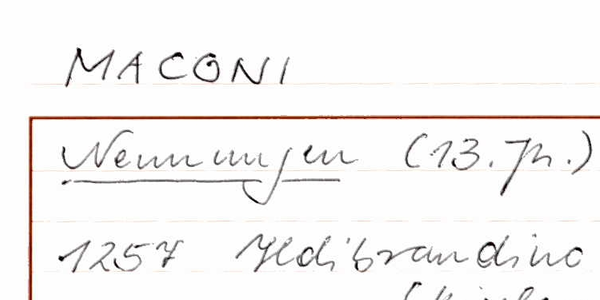 MACONI
Nennungen (13. Jh.)
1257 Ildibrandino